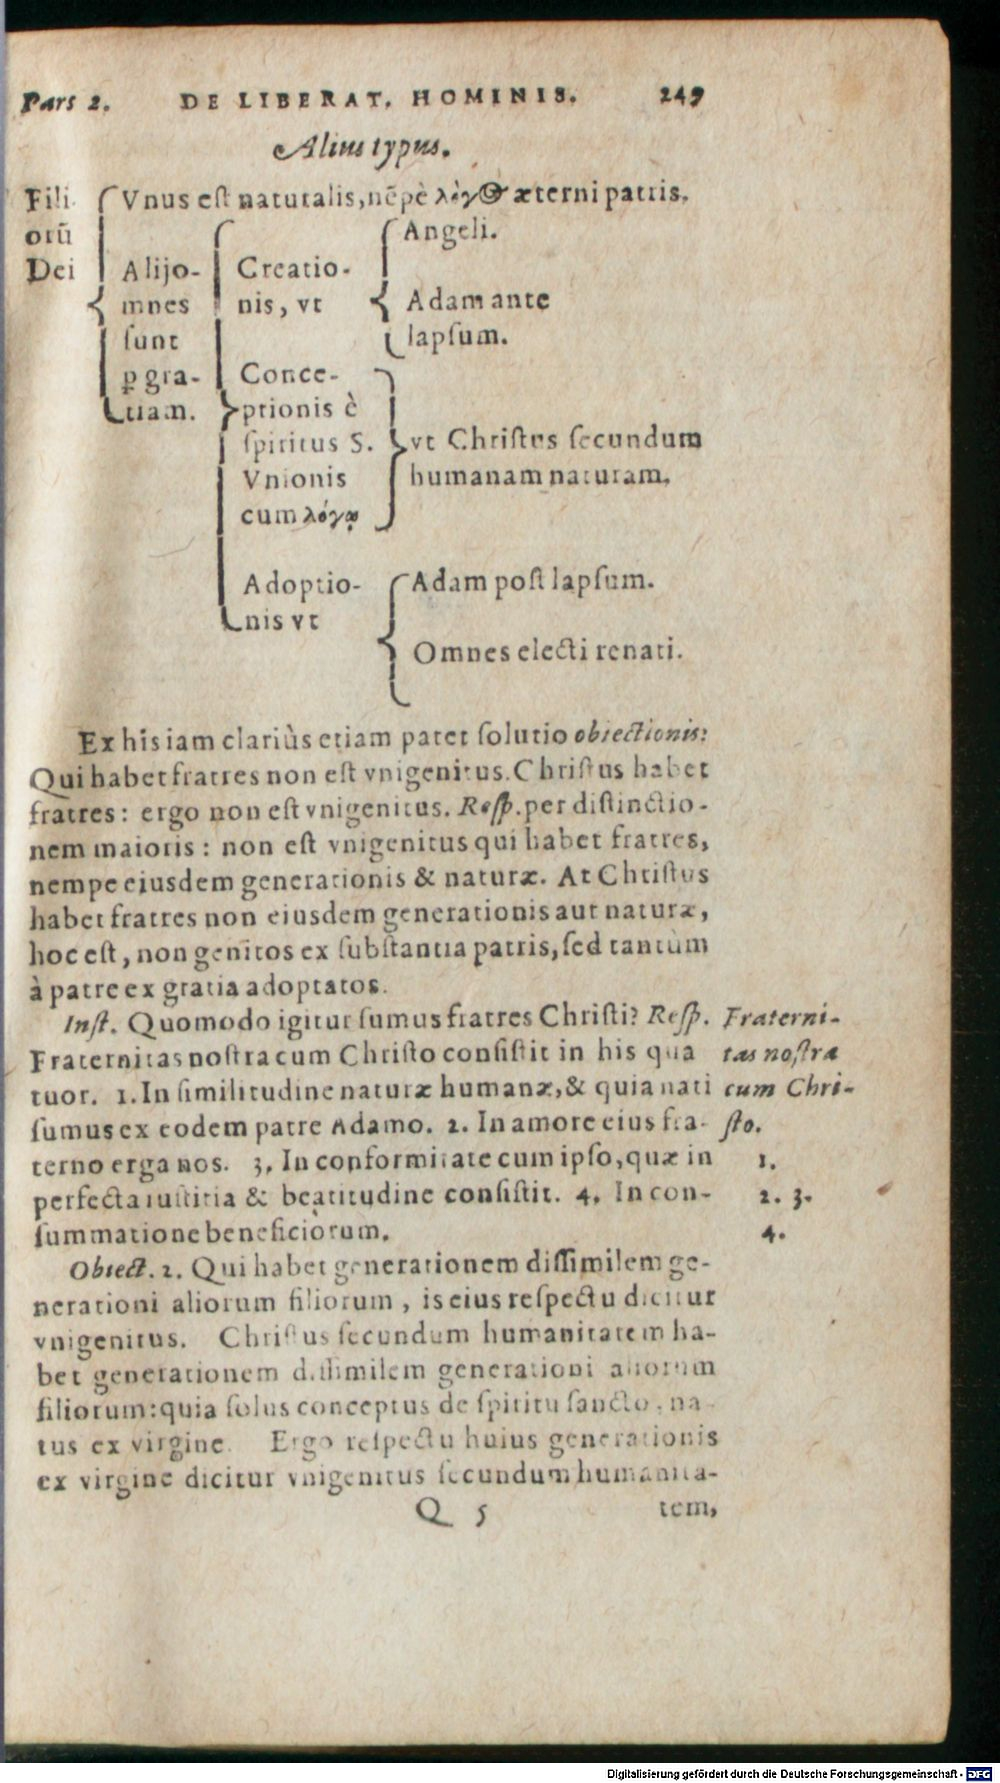 Pars 2. DE LIBERAT. HOMINIS. 249
Alius typus.
Fili- Vnus est naturalis, nēpè λόγος æterni patris.
orū Angeli.
Dei Alij o- Creatio-
mnes nis, vt Adam ante
sunt lapsum.
ꝑ gra- Conce-
tiam. ptionis è
spiritus S. vt Christus secundum
Vnionis humanam naturam.
cum λόγῳ
Adoptio- Adam post lapsum.
nis vt
Omnes electi renati.
Ex his iam clariùs etiam patet solutio obiectionis:
Qui habet fratres non est vnigenitus. Christus habet
fratres: ergo non est vnigenitus. Resp. per distinctio-
nem maioris: non est vnigenitus qui habet fratres,
nempe eiusdem generationis & naturæ. At Christus
habet fratres non eiusdem generationis aut naturæ,
hoc est, non genitos ex substantia patris, sed tantùm
à patre ex gratia adoptatos.
Inst. Quomodo igitur sumus fratres Christi? Resp. Fraterni-
Fraternitas nostra cum Christo consistit in his qua tas nostra
tuor. 1. In similitudine naturæ humanæ, & quia nati cum Chri-
sumus ex eodem patre Adamo. 2. In amore eius fra- sto.
terno erga nos. 3. In conformitate cum ipso, quæ in 1.
perfecta iustitia & beatitudine consistit. 4. In con- 2. 3.
summatione beneficiorum. 4.
Obiect. 2. Qui habet generationem dissimilem ge-
nerationi aliorum filiorum, is eius respectu dicitur
vnigenitus. Christus secundum humanitatem ha-
bet generationem dissimilem generationi aliorum
filiorum: quia solus conceptus de spiritu sancto, na-
tus ex virgine. Ergo respectu huius generationis
ex virgine dicitur vnigenitus secundum humanita-
Q 5 tem,
Digitalisierung gefördert durch die Deutsche Forschungsgemeinschaft - DFG